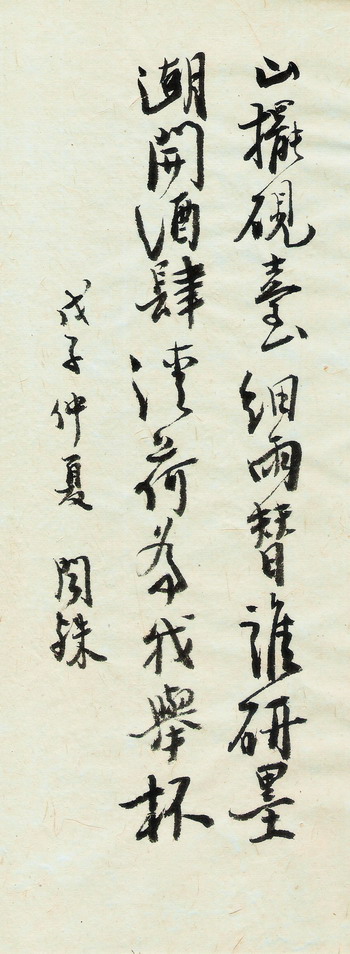 山擺硯臺細雨替誰研墨
湖開酒肆清荷為我舉杯
戊子仲夏